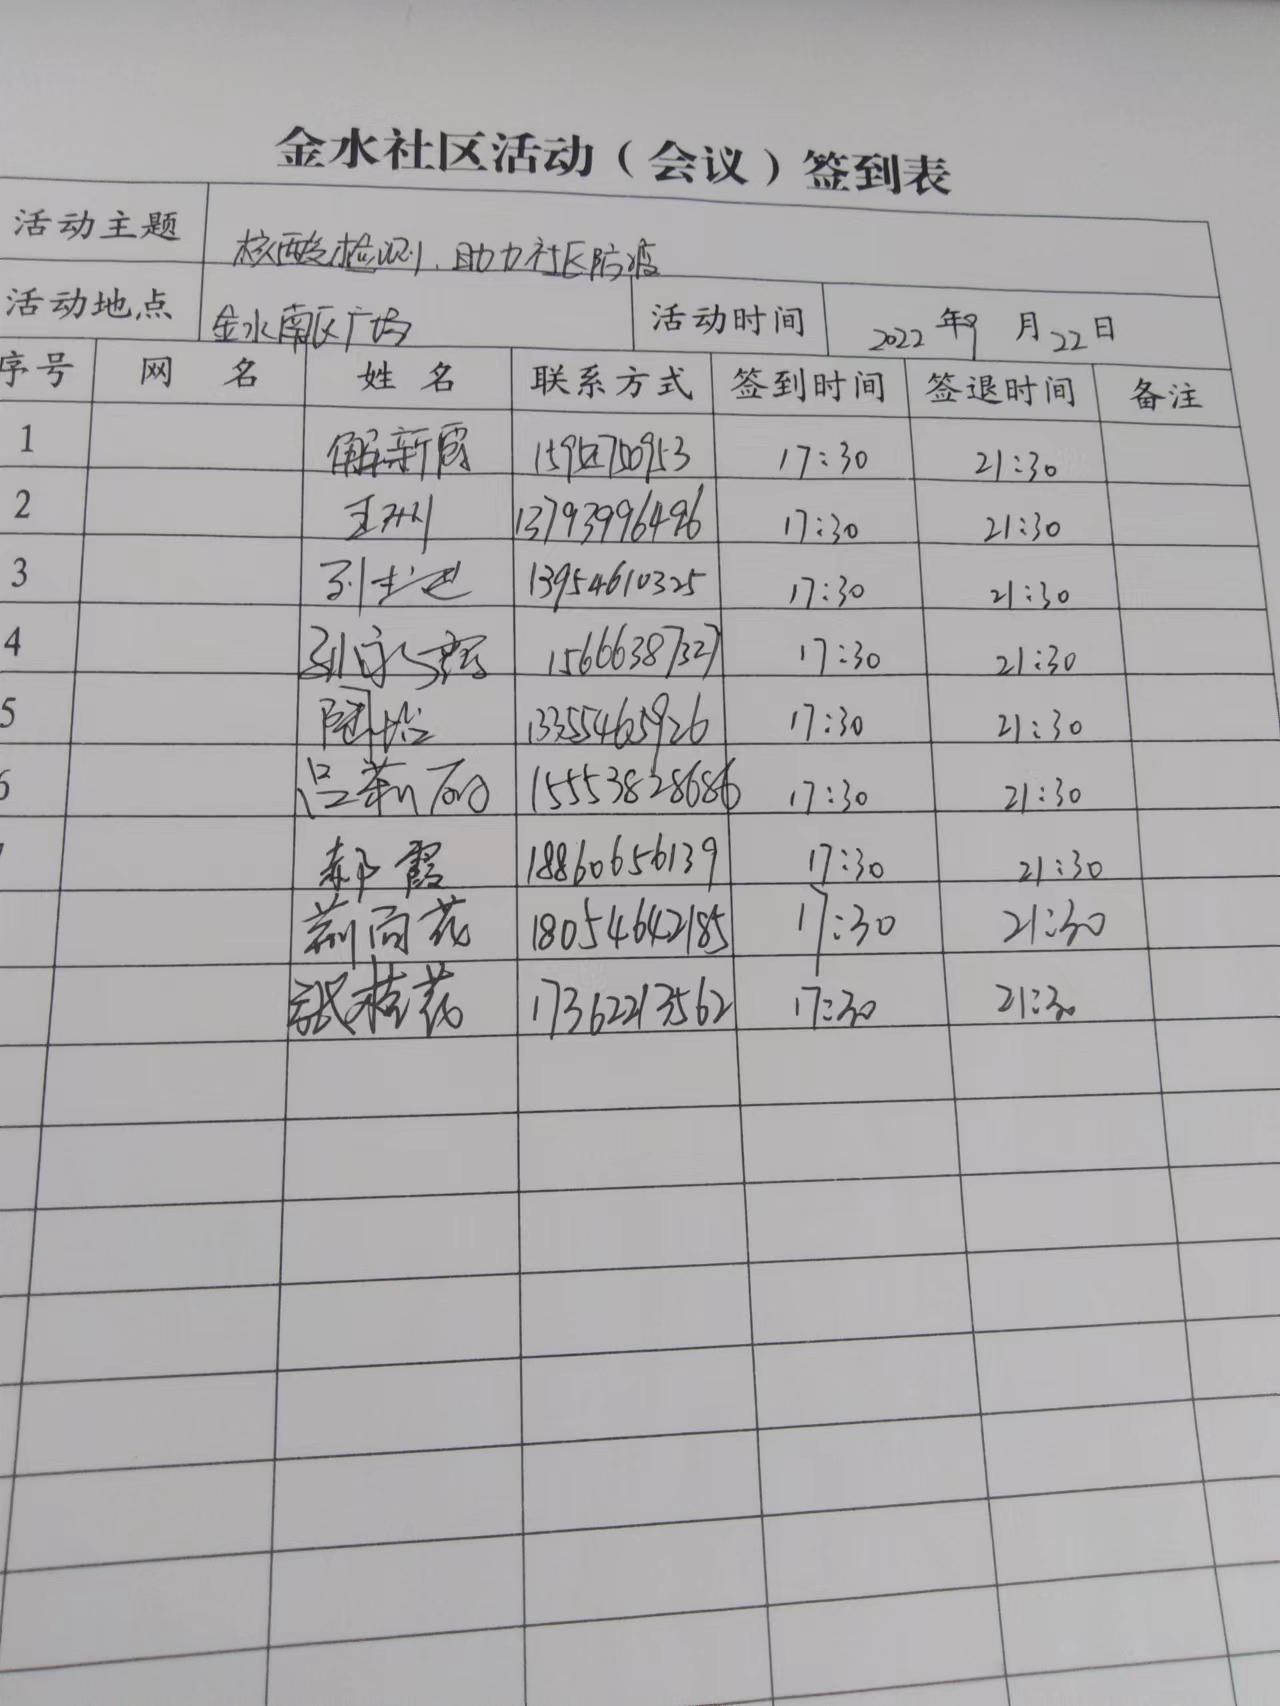 金水社区活动（会议）签到表
活动主题 核酸检测、助力社区防疫
活动地点 金水南区广场 活动时间 2022年9月22日
序号 网名 姓名 联系方式 签到时间 签退时间 备注
1 解新霞 17:30 21:30
2 王洲 13793996496 17:30 21:30
3 13954610325 17:30 21:30
4 15666387327 17:30 21:30
5 13355465926 17:30 21:30
6 吕莉丽 15553828686 17:30 21:30
郝霞 18860656139 17:30 21:30
荆向花 18054642185 17:30 21:30
张桂花 17362213562 17:30 21:30